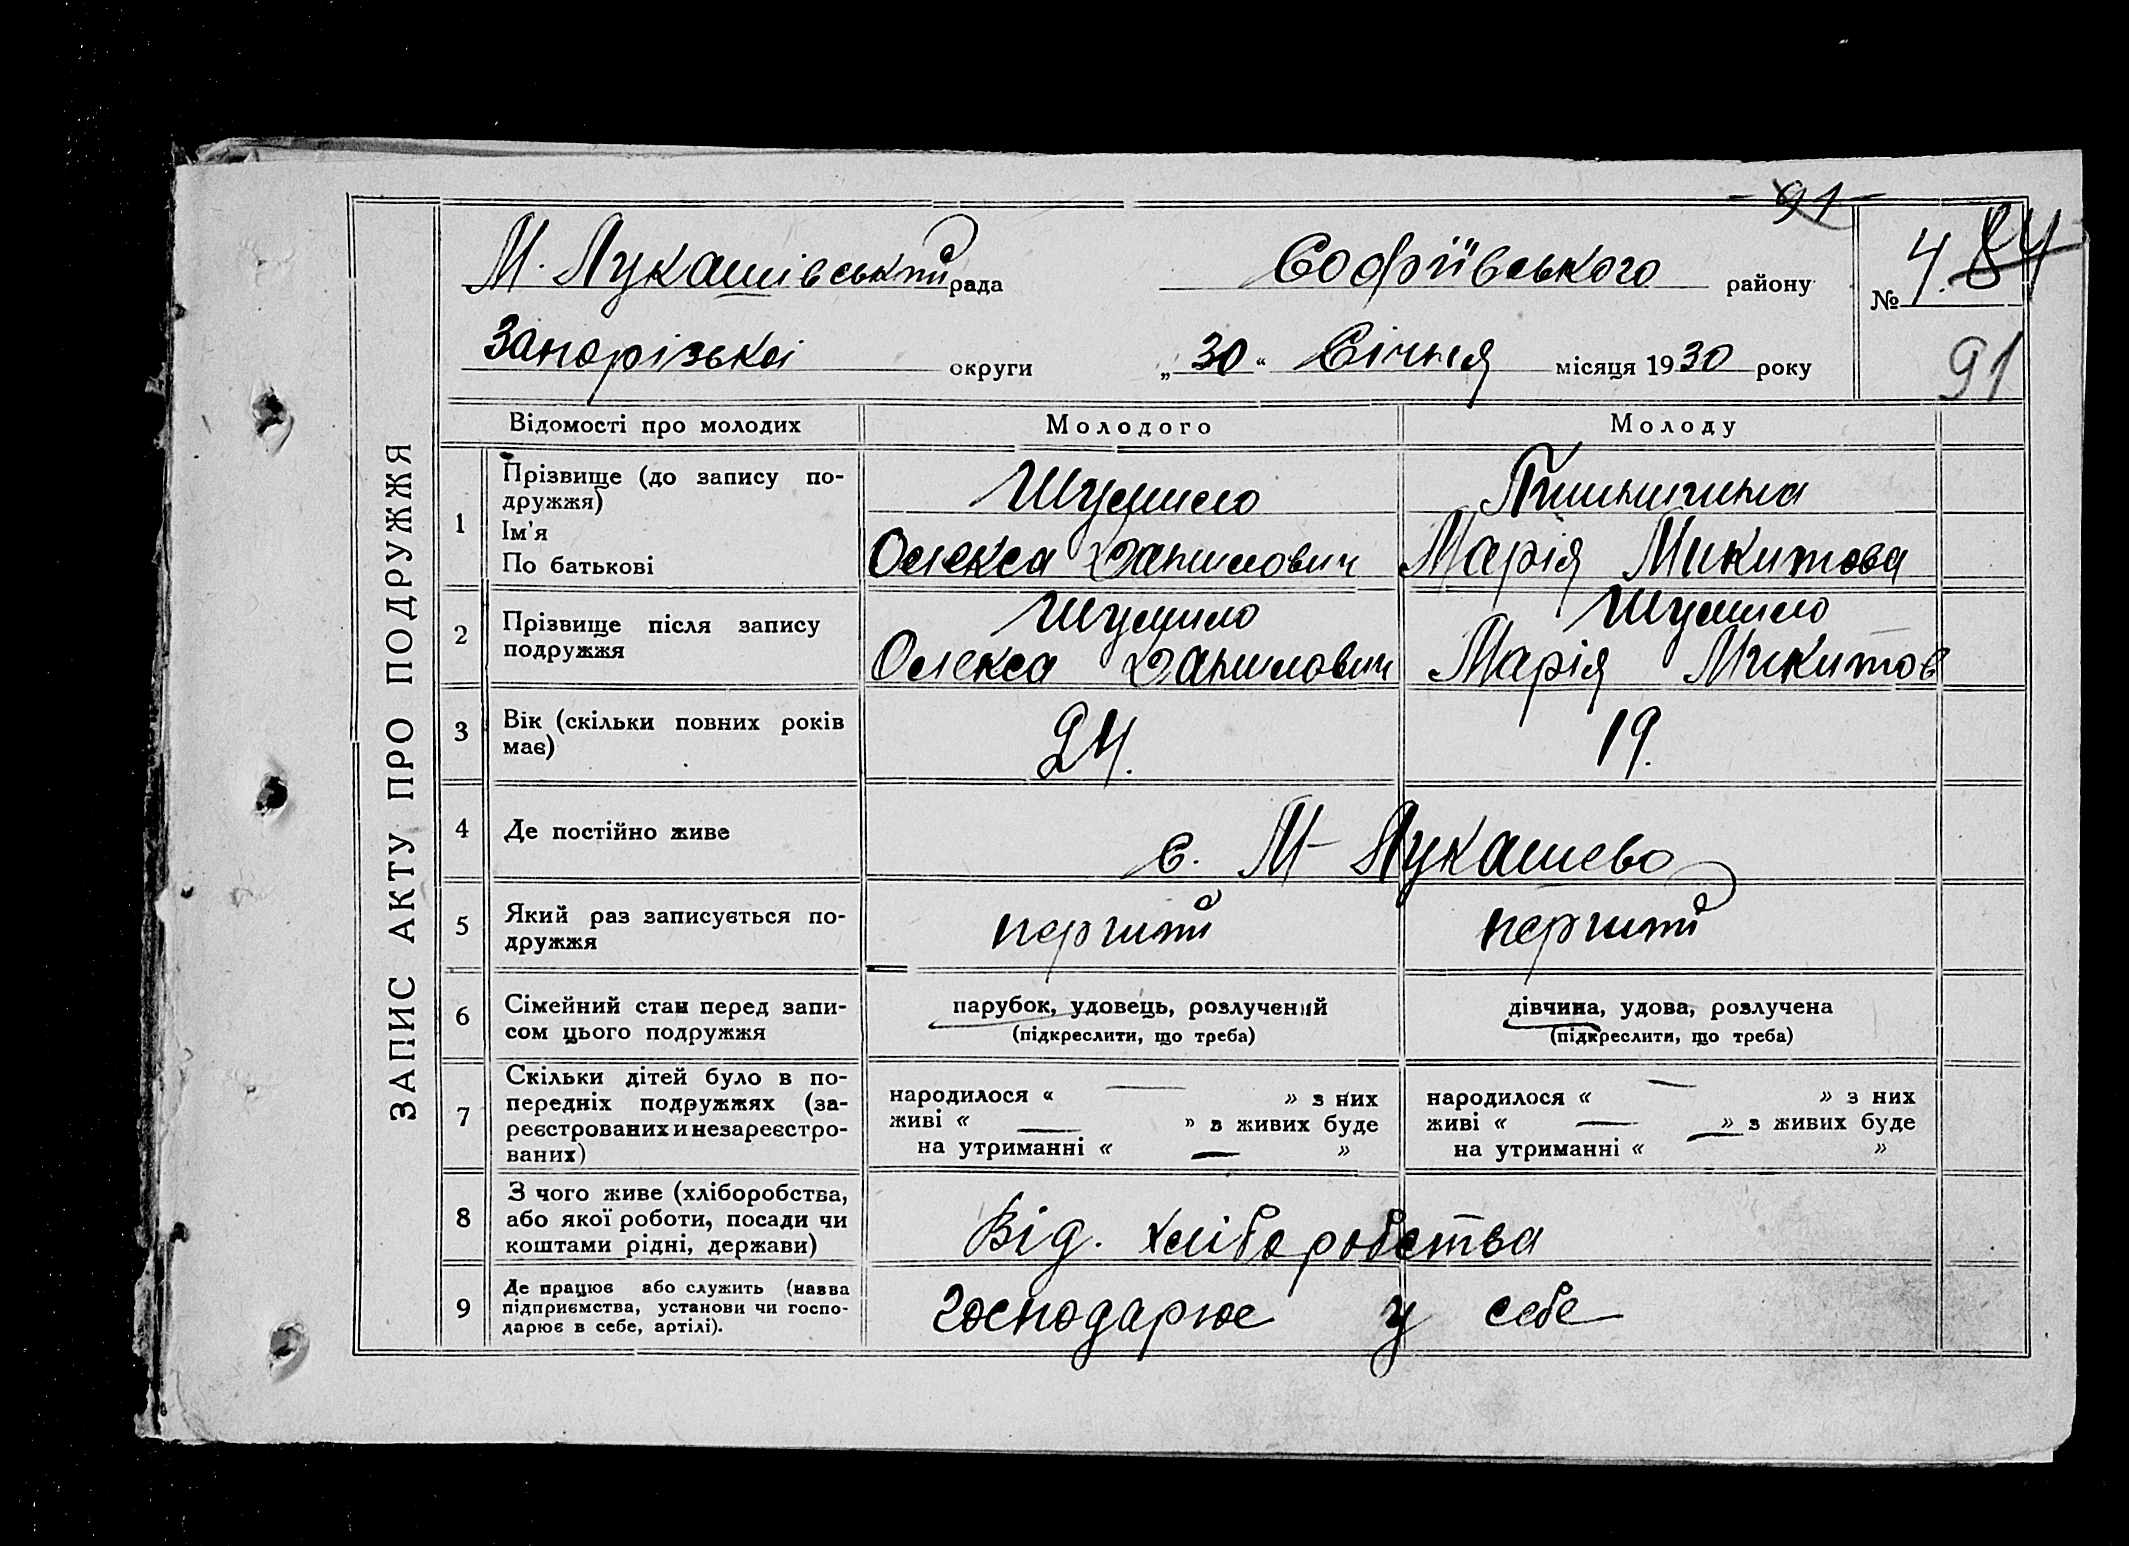 91
М. Лукашівський рада Софіївського району № 4. 84
Запорізької округи „30“ Січня місяця 1930 року 91
ЗАПИС АКТУ ПРО ПОДРУЖЖЯ
Відомості про молодих Молодого Молоду
1 Прізвище (до запису по-
дружжя)
Шумило
Ім'я
По батькові
Олекса Данилович Марія Микитова
2 Прізвище після запису
подружжя
Шумило Шумило
Олекса Данилович Марія Микитов
3 Вік (скільки повних років
має)
24. 19.
4 Де постійно живе с. М-Лукашево
5 Який раз записується по-
дружжя
перший перший
6 Сімейний стан перед запи-
сом цього подружжя
парубок, удовець, розлучений дівчина, удова, розлучена
(підкреслити, що треба) (підкреслити, що треба)
7 Скільки дітей було в по-
передніх подружжях (за-
реєстрованих и незареєстро-
ваних)
народилося « — » з них народилося « — » з них
живі « — » в живих буде живі « — » з живих буде
на утриманні « — » на утриманні « — »
8 З чого живе (хліборобства,
або якої роботи, посади чи
коштами рідні, держави)
Від. хліборобства
9 Де працює або служить (назва
підприємства, установи чи госпо-
дарює в себе, артілі).
Господарює у себе